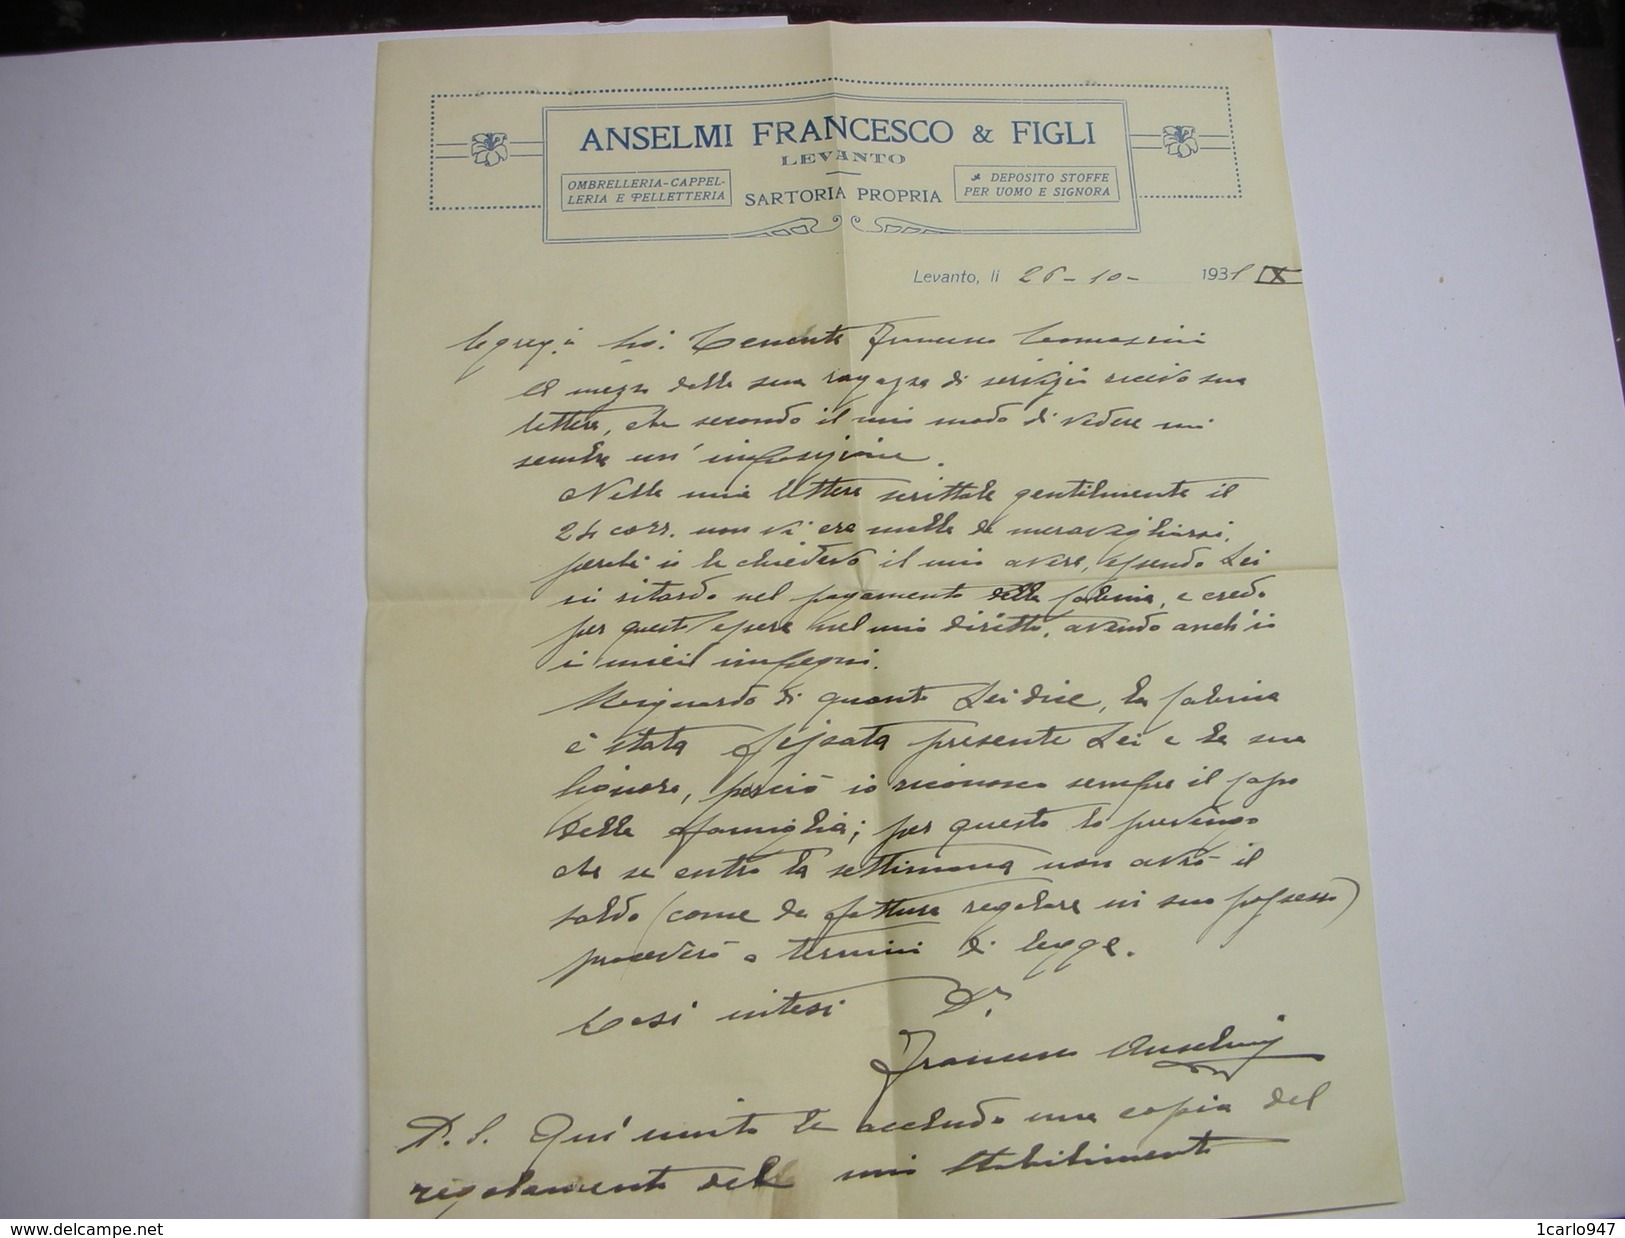 ANSELMI FRANCESCO & FIGLI
LEVANTO
OMBRELLERIA-CAPPEL-
LERIA E PELLETTERIA
SARTORIA PROPRIA
DEPOSITO STOFFE
PER UOMO E SIGNORA
Levanto, li 26-10- 1931 IX
Egregio Sig. Tenente Francesco Tomasini
A mezzo della sua ragazza di servizio ricevo sua
lettera, che secondo il mio modo di vedere mi
sembra un' imposizione.
Nella mia lettera scrittale gentilmente il
24 corr. non vi era nulla da meravigliarsi,
perchè io le chiedevo il mio avere, essendo Lei
in ritardo nel pagamento della fabrica, e credo
per questo essere nel mio diritto, avendo anch'io
i miei impegni.
Riguardo di quanto Lei dice, la fabrica
è stata fissata presente Lei e la sua
Signora, perciò io riconosco sempre il capo
della famiglia; per questo la prevengo
che se entro la settimana non avrò il
saldo (come da fattura regolare in suo possesso)
procederò a termini di legge.
Così intesi D.
Francesco Anselmi
P.S. Qui unito le accludo una copia del
regolamento del mio Stabilimento
delcampe.net
1carlo947